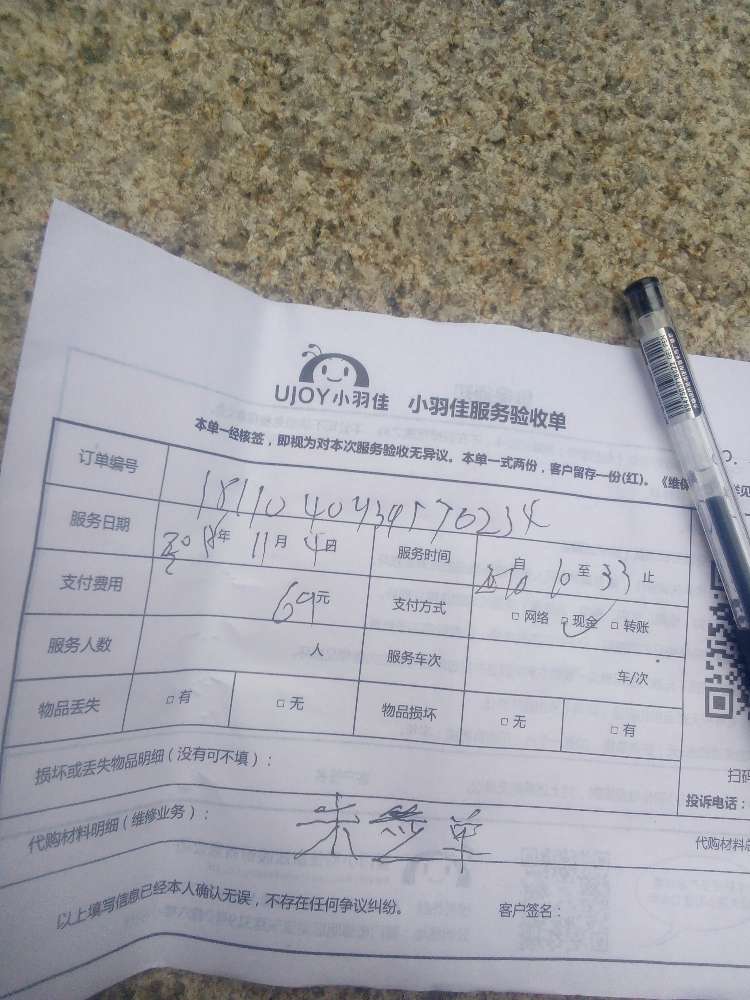 UJOY小羽佳 小羽佳服务验收单
本单一经核签，即视为对本次服务验收无异议。本单一式两份，客户留存一份(红)。《维保
订单编号
服务日期 2018年 11月 4日 服务时间 自 至 33 止
支付费用 69元 支付方式 □ 网络 □ 现金 □ 转账
服务人数 人 服务车次 车/次
物品丢失 □ 有 □ 无 物品损坏 □ 无 □ 有
损坏或丢失物品明细（没有可不填）：
扫码
投诉电话：
代购材料明细（维修业务）： 代购材料总
以上填写信息已经本人确认无误，不存在任何争议纠纷。 客户签名：